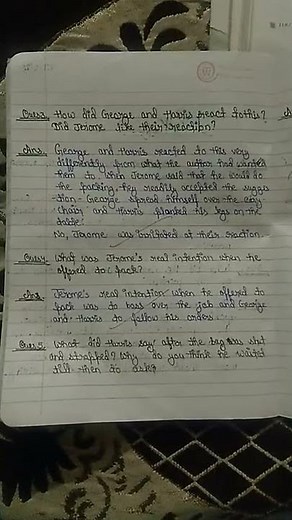 Ques3. How did George and Harris react to this?
Did Jerome like their reaction?
Ans. George and Harris reacted to this very
differently from what the author had wanted
them to when Jerome said that he would do
the packing they readily accepted the sugges
tion - George spread himself over the easy
chair and Harris planted his legs on the
table.
No, Jerome was irritated at their reaction.
Ques4. What was Jerome's real intention when he
offered to pack?
Ans. Jerome's real intention when he offered to
pack was to boss over the job and George
and Harris to follow his orders.
Ques5. What did Harris say after the bag was shut
and strapped? Why do you think he waited
till then to ask?